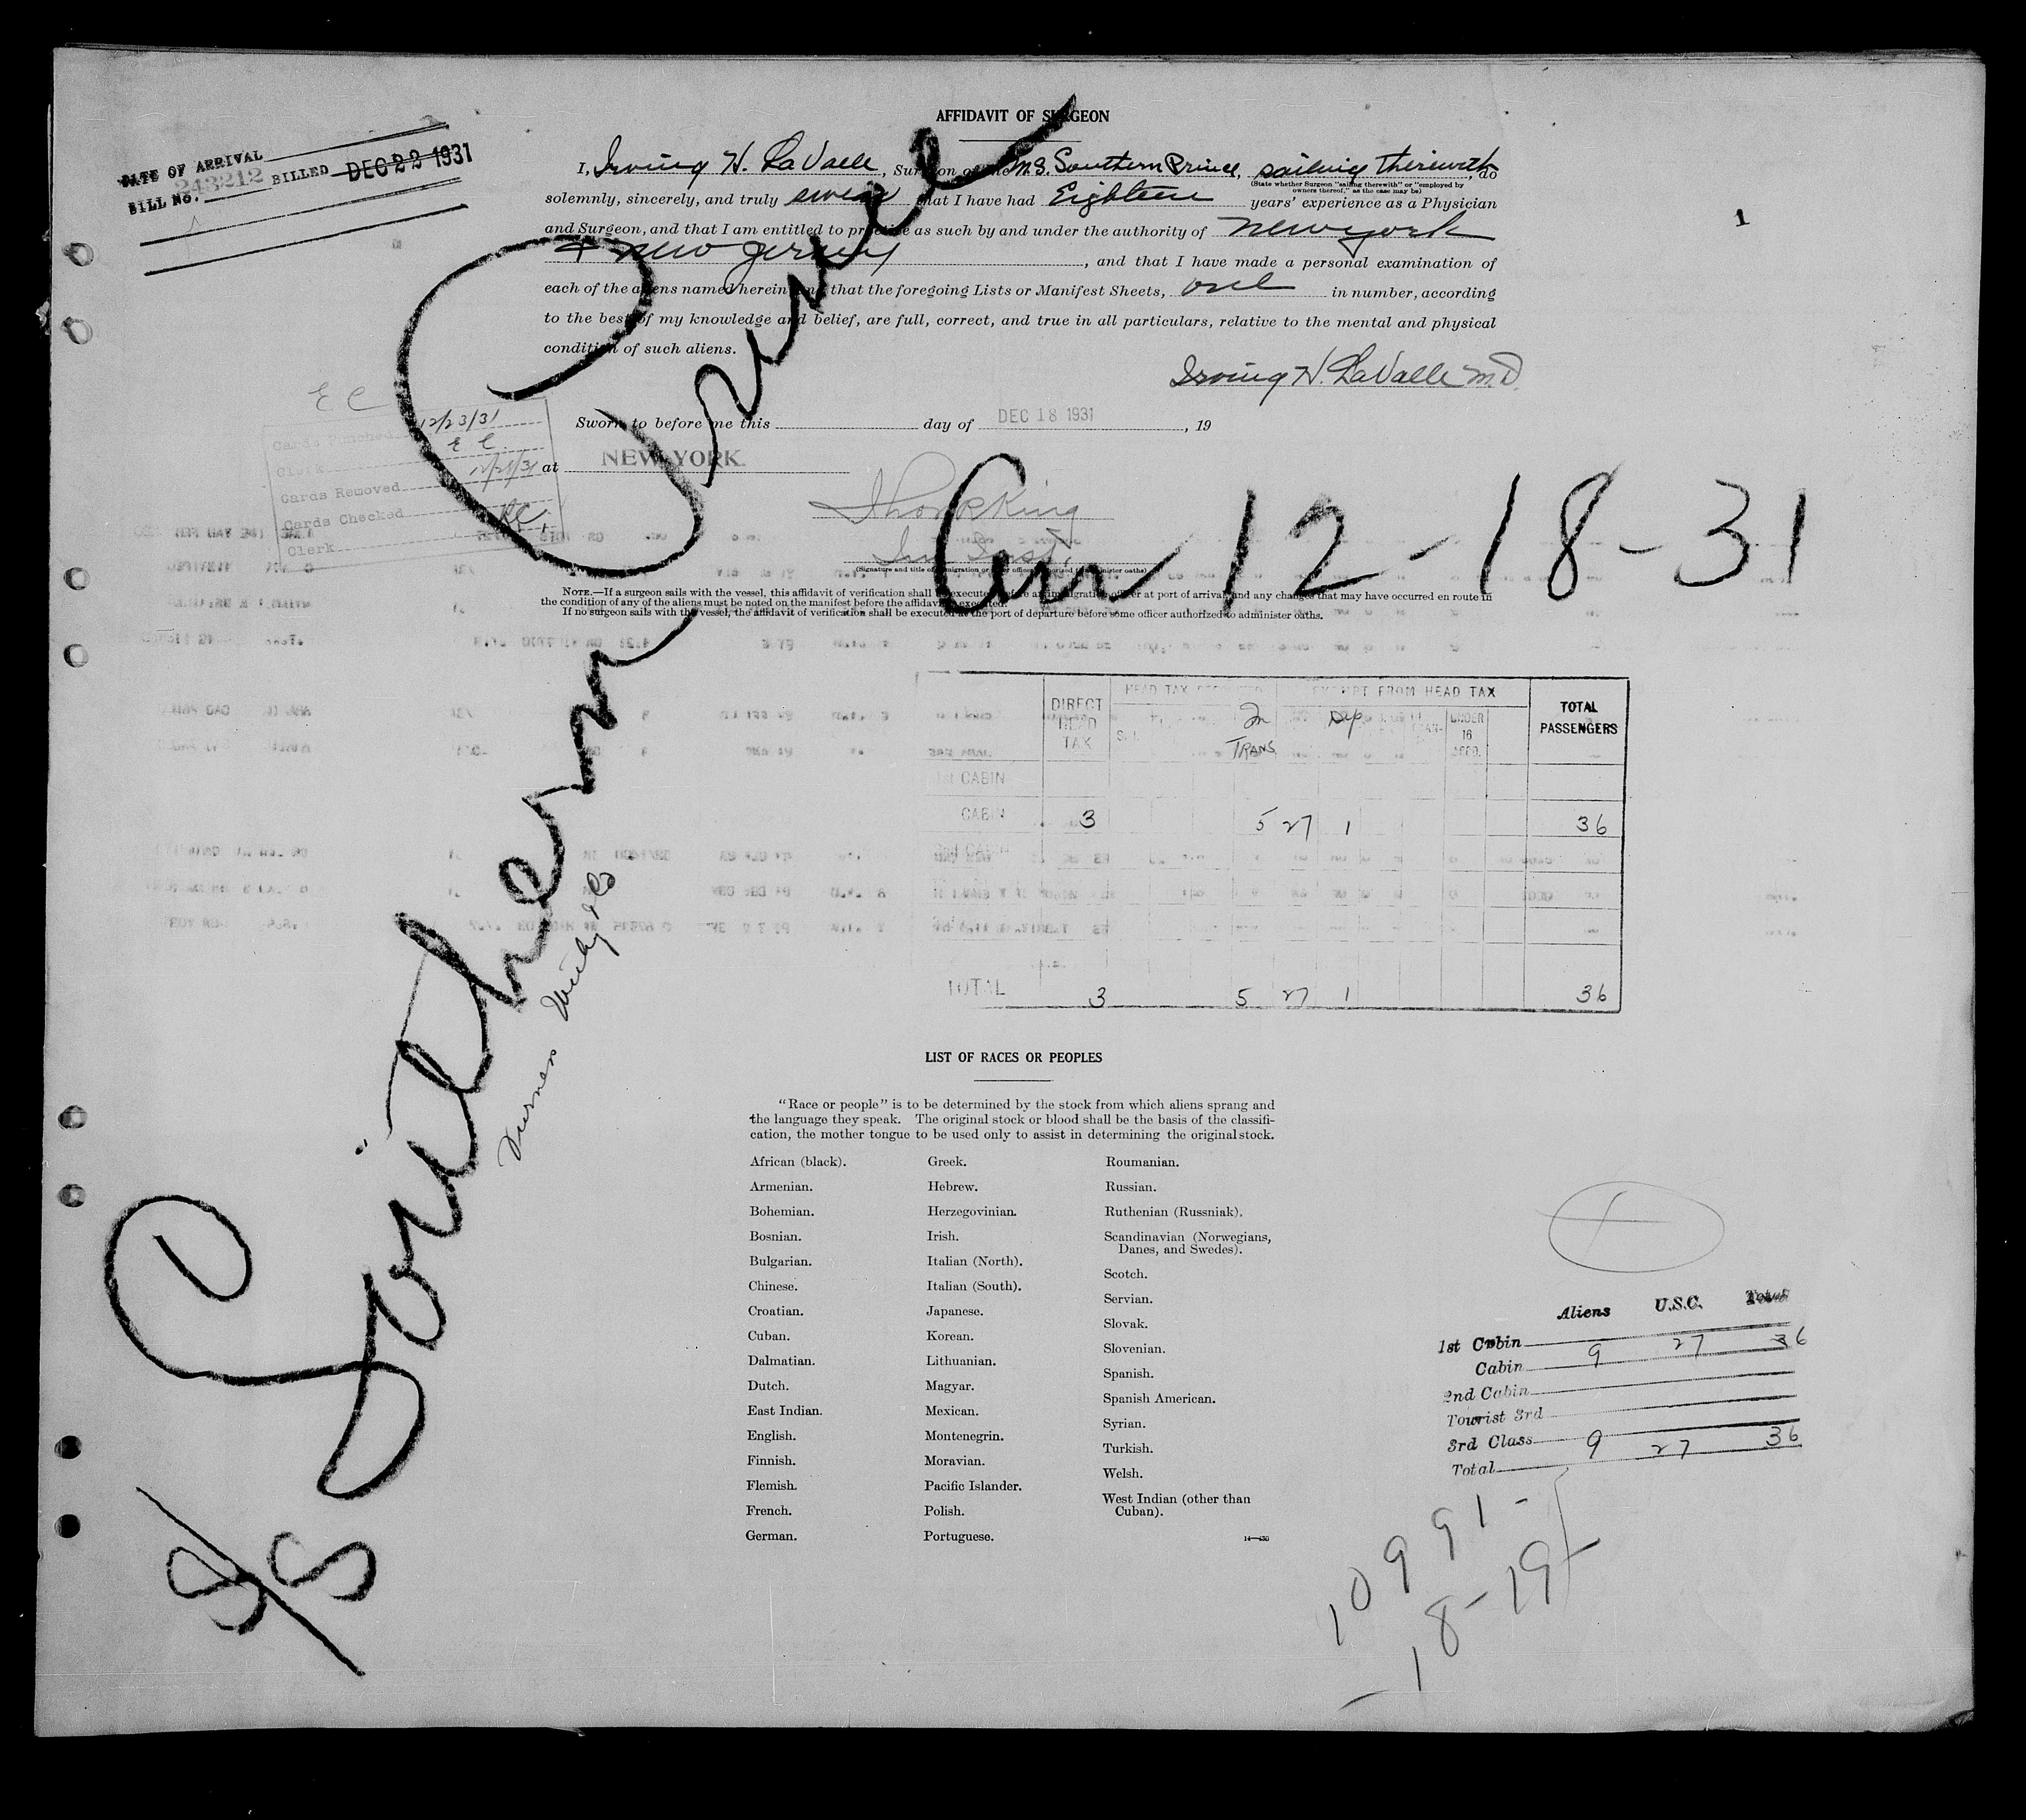 AFFIDAVIT OF SURGEON
DATE OF ARRIVAL
BILL No. 243212 BILLED DEC 22 1931
I, Irving H. LaValle, Surgeon of the M.S. Southern Prince, sailing therewith, do
(State whether Surgeon "sailing therewith" or "employed by
owners thereof," as the case may be)
solemnly, sincerely, and truly swear that I have had Eighteen years' experience as a Physician
and Surgeon, and that I am entitled to practice as such by and under the authority of New York
+ New Jersey, and that I have made a personal examination of
each of the aliens named herein and that the foregoing Lists or Manifest Sheets, one in number, according
to the best of my knowledge and belief, are full, correct, and true in all particulars, relative to the mental and physical
condition of such aliens.
Irving H. LaValle M.D.
1
Sworn to before me this day of DEC 18 1931, 19
at NEW YORK.
E C
Cards Punched 12/23/31
Clerk E C
Cards Removed
Cards Checked
Clerk
(Signature and title of immigration or other officer authorized to administer oaths)
Arr 12-18-31
NOTE.—If a surgeon sails with the vessel, this affidavit of verification shall be executed before an immigration officer at port of arrival and any changes that may have occurred en route in
the condition of any of the aliens must be noted on the manifest before the affidavit is executed.
If no surgeon sails with the vessel, the affidavit of verification shall be executed at the port of departure before some officer authorized to administer oaths.
S/S Southern Prince
Furness Withy & Co
DIRECT HEAD TAX EXEMPT FROM HEAD TAX TOTAL PASSENGERS
In TRANS Dip UNDER 16
1st CABIN
CABIN 3 5 27 1 36
TOTAL 3 5 27 1 36
LIST OF RACES OR PEOPLES
"Race or people" is to be determined by the stock from which aliens sprang and
the language they speak. The original stock or blood shall be the basis of the classifi-
cation, the mother tongue to be used only to assist in determining the original stock.
African (black).
Armenian.
Bohemian.
Bosnian.
Bulgarian.
Chinese.
Croatian.
Cuban.
Dalmatian.
Dutch.
East Indian.
English.
Finnish.
Flemish.
French.
German.
Greek.
Hebrew.
Herzegovinian.
Irish.
Italian (North).
Italian (South).
Japanese.
Korean.
Lithuanian.
Magyar.
Mexican.
Montenegrin.
Moravian.
Pacific Islander.
Polish.
Portuguese.
Roumanian.
Russian.
Ruthenian (Russniak).
Scandinavian (Norwegians,
Danes, and Swedes).
Scotch.
Servian.
Slovak.
Slovenian.
Spanish.
Spanish American.
Syrian.
Turkish.
Welsh.
West Indian (other than
Cuban).
Aliens U.S.C. Total
1st Cabin
Cabin 9 27 36
2nd Cabin
Tourist 3rd
3rd Class
Total 9 27 36
10991-
-18-19